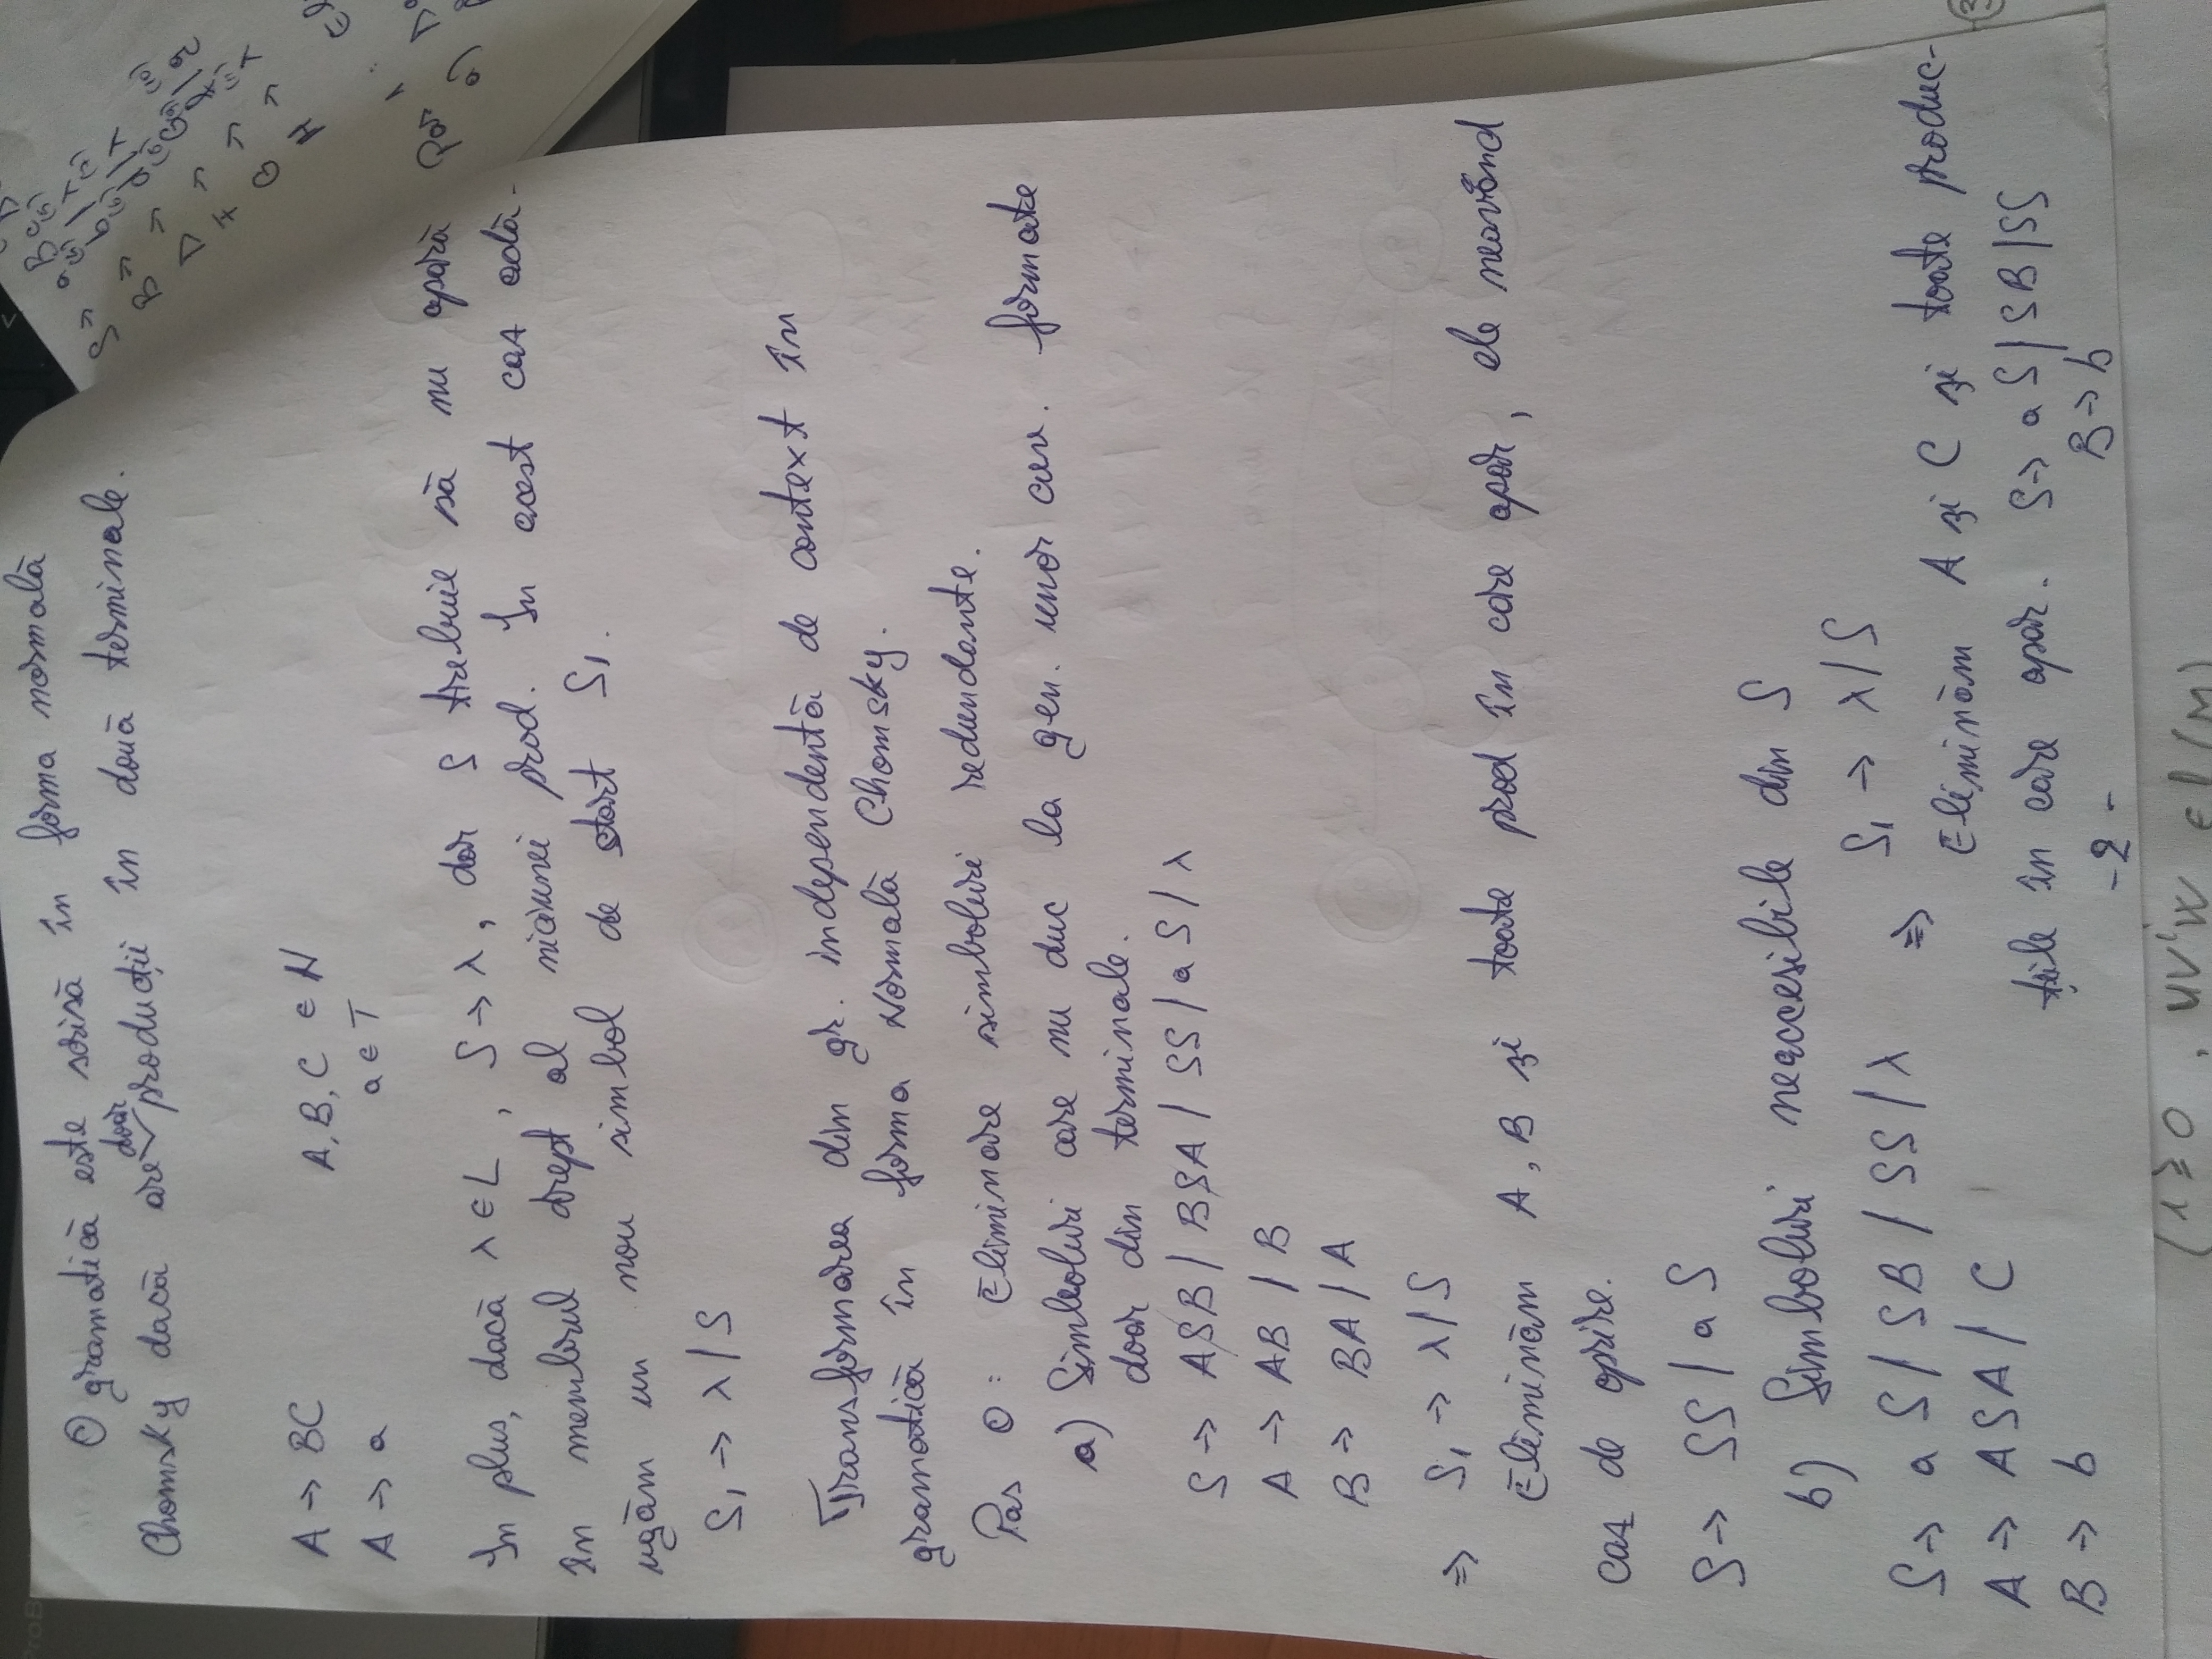 O gramatică este scrisă în forma normală
doar
Chomsky dacă are producții în două terminale.
A → BC A, B, C ∈ N
A → a a ∈ T
In plus, dacă λ ∈ L , S → λ, dar S trebuie să nu apară
în membrul drept al niciunei prod. In acest caz adă-
ugăm un nou simbol de start S₁.
S₁ → λ / S
Transformarea din gr. independentă de context în
gramatică în forma Normală Chomsky.
Pas 0 : Eliminare simboluri redundante.
a) Simboluri care nu duc la gen. unor cuv. formate
doar din terminale.
S → ASB / BSA / SS / aS / λ
A → AB / B
B → BA / A
⇒ S₁ → λ / S
Eliminăm A, B și toate prod în care apar, ele neavând
caz de oprire.
S → SS / aS
b) Simboluri neaccesibile din S
S → aS / SB / SS / λ ⇒ S₁ → λ / S
Eliminăm A și C și toate produc-
A → ASA / C
țiile în care apar. S → aS / SB / SS
B → b B → b
-2-
Pas 1 :
a)
3
i ≥ 0 , uvⁱw ∈ L(M)